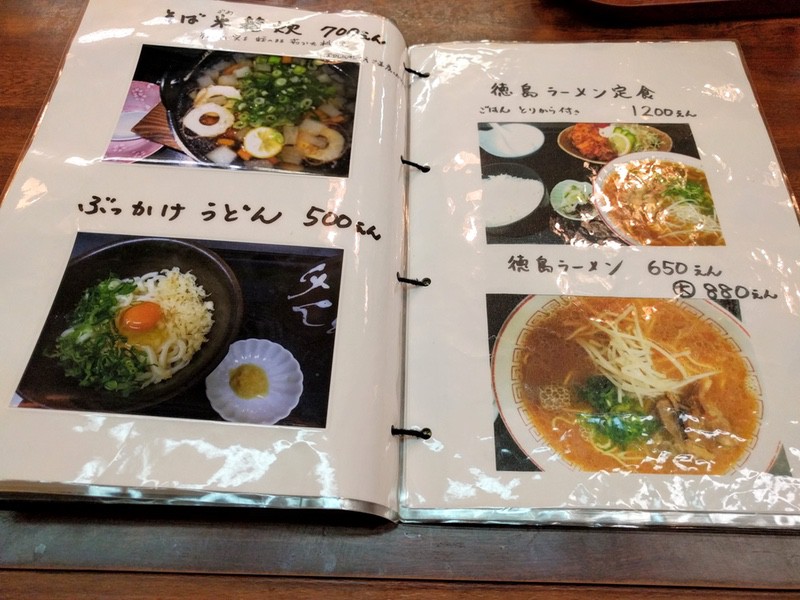 そば米雑炊 700えん
ぶっかけうどん 500えん
徳島ラーメン定食
ごはん とりから付き 1200えん
徳島ラーメン 650えん
大 880えん